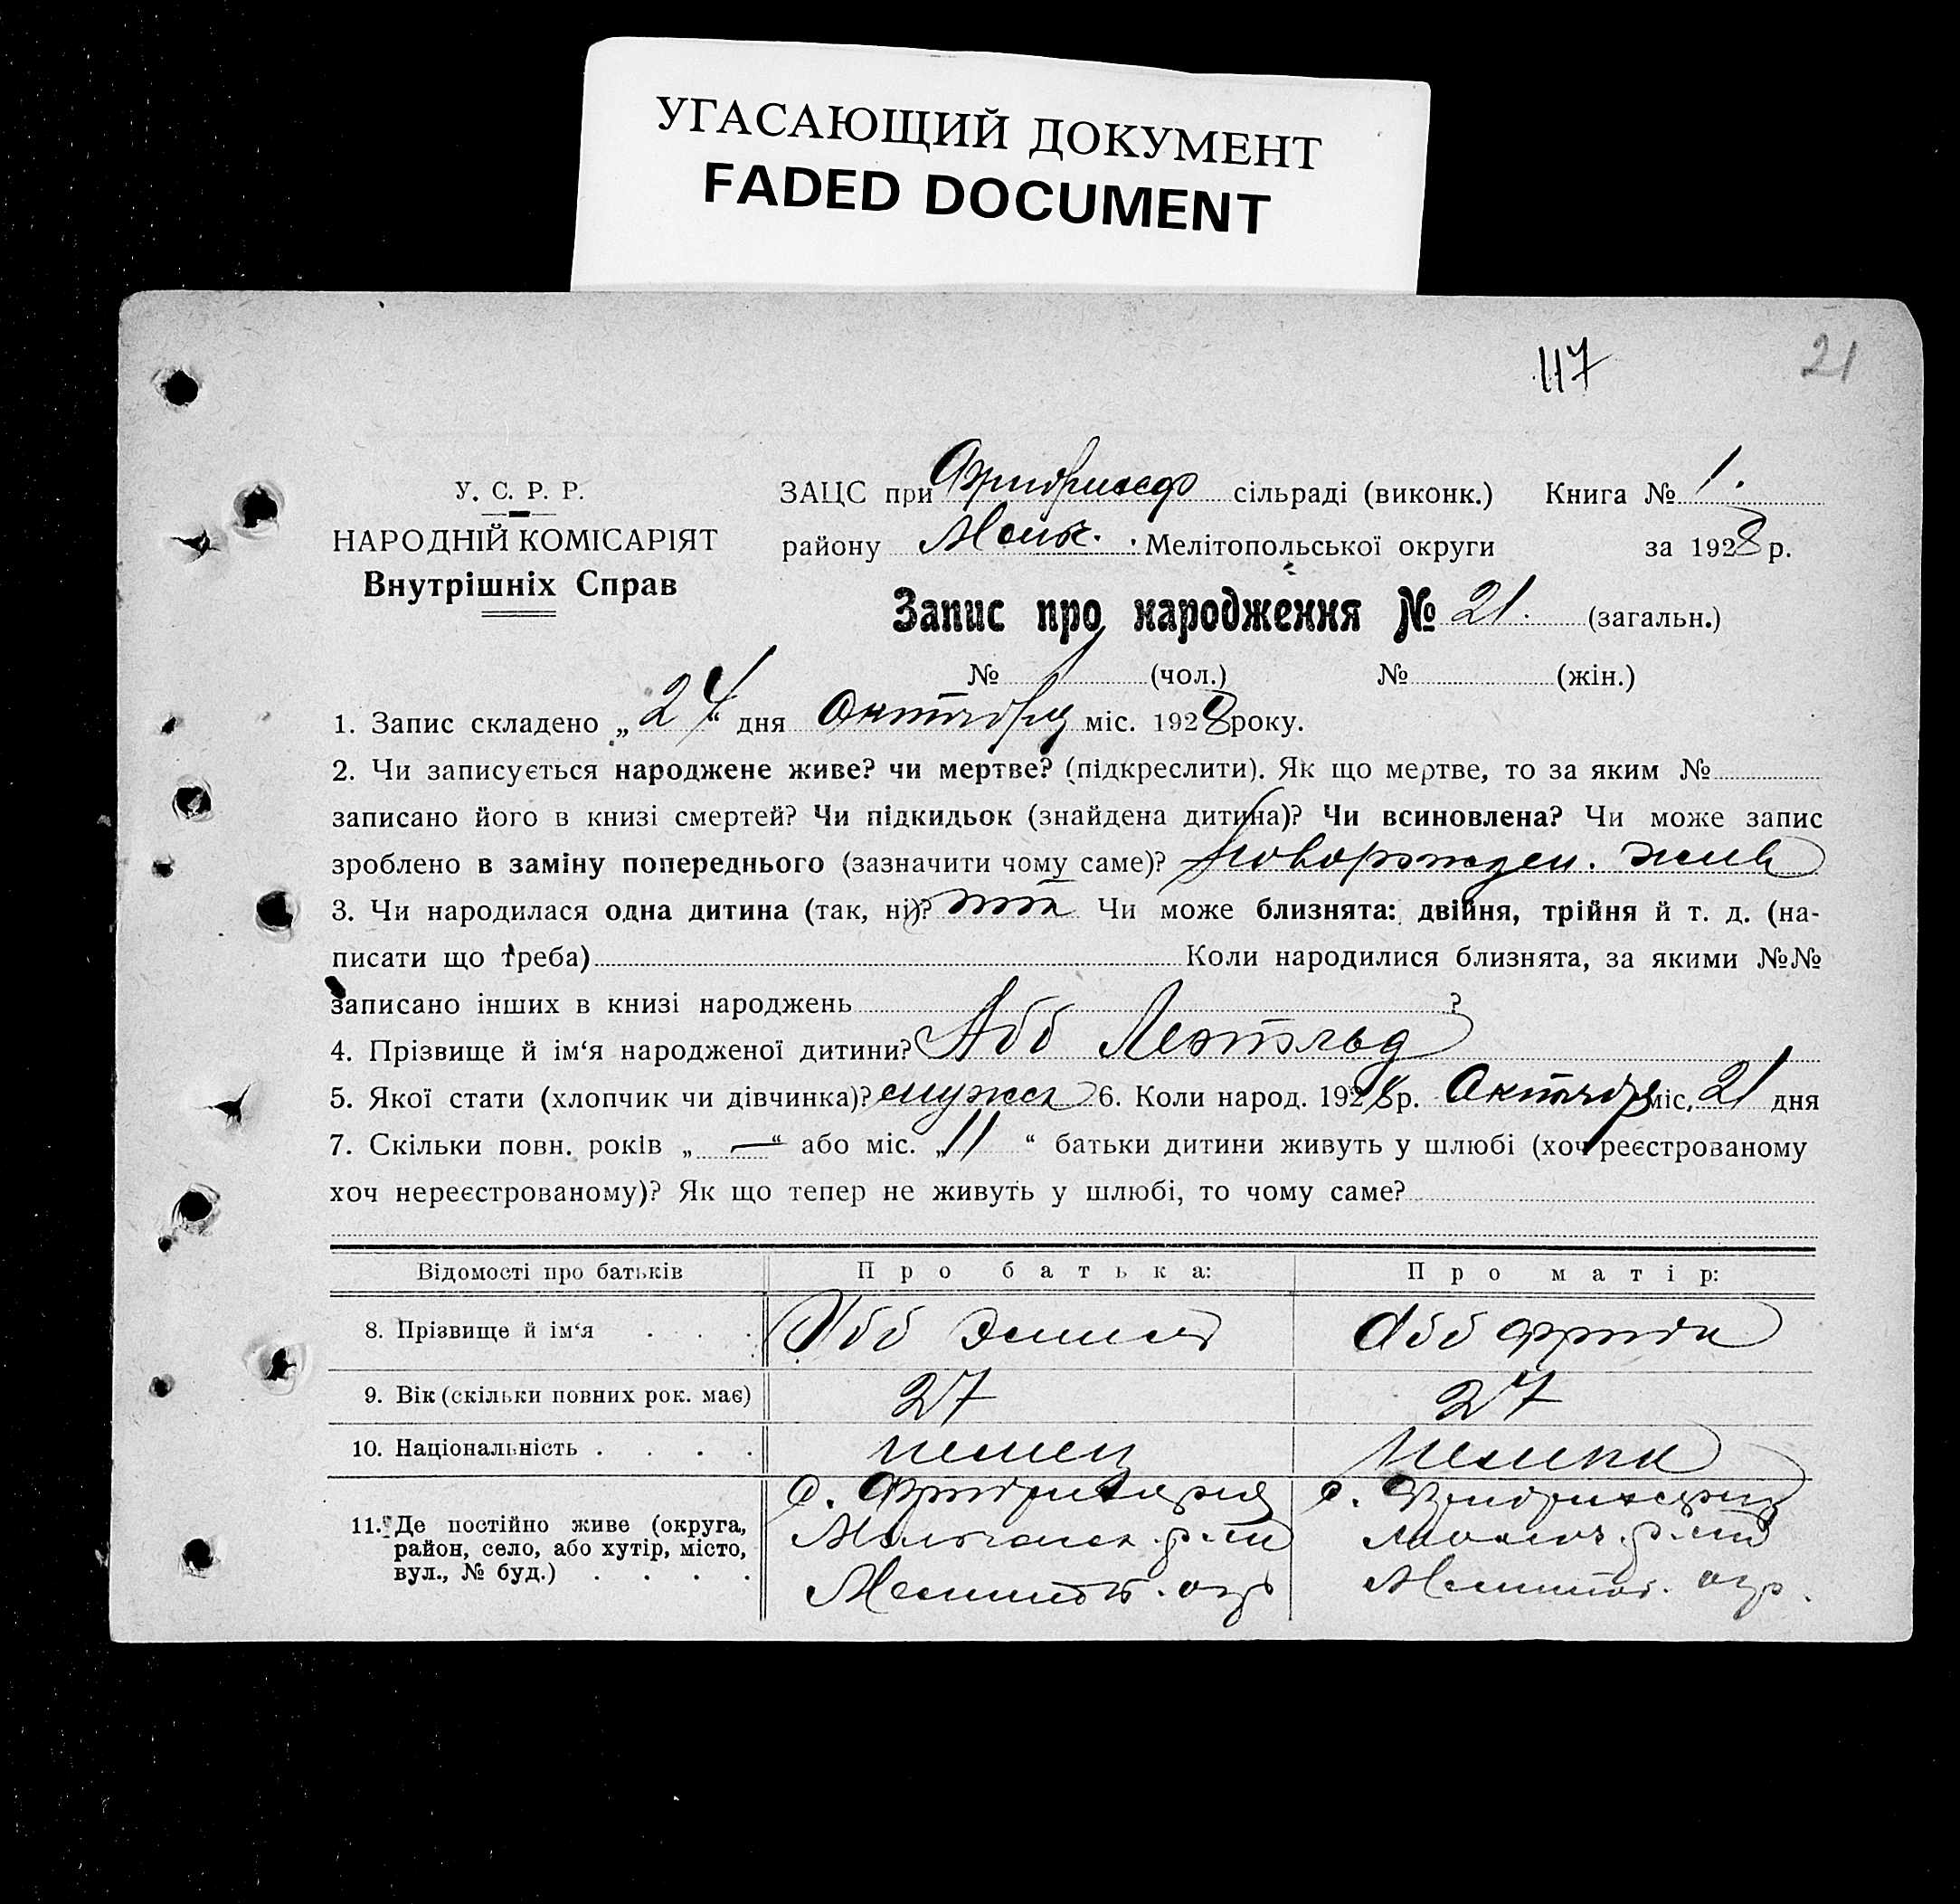 УГАСАЮЩИЙ ДОКУМЕНТ
FADED DOCUMENT
117 21
У. С. Р. Р.
НАРОДНІЙ КОМІСАРІЯТ
Внутрішніх Справ
ЗАЦС при сільраді (виконк.) Книга № 1.
району Мелітопольської округи за 1928 р.
Запис про народження № 21. (загальн.)
№ (чол.) № (жін.)
1. Запис складено „24“ дня Октября міс. 1928 року.
2. Чи записується народжене живе? чи мертве? (підкреслити). Як що мертве, то за яким №
записано його в книзі смертей? Чи підкидьок (знайдена дитина)? Чи всиновлена? Чи може запис
зроблено в заміну попереднього (зазначити чому саме)? новорожден. жив
3. Чи народилася одна дитина (так, ні)? так Чи може близнята: двійня, трійня й т. д. (на-
писати що треба) Коли народилися близнята, за якими №№
записано інших в книзі народжень ?
4. Прізвище й ім‘я народженої дитини? Абб
5. Якої стати (хлопчик чи дівчинка)? 6. Коли народ. 1928 р. Октября міс. 21 дня
7. Скільки повн. років „—“ або міс. „11“ батьки дитини живуть у шлюбі (хоч реєстрованому
хоч нереєстрованому)? Як що тепер не живуть у шлюбі, то чому саме?
Відомості про батьків Про батька: Про матір:
8. Прізвище й ім‘я . . . . Абб Эмиль Абб Фрида
9. Вік (скільки повних рок. має) 27 27
10. Національність . . . . немец немка
11. Де постійно живе (округа,
район, село, або хутір, місто,
вул., № буд.) . . . .